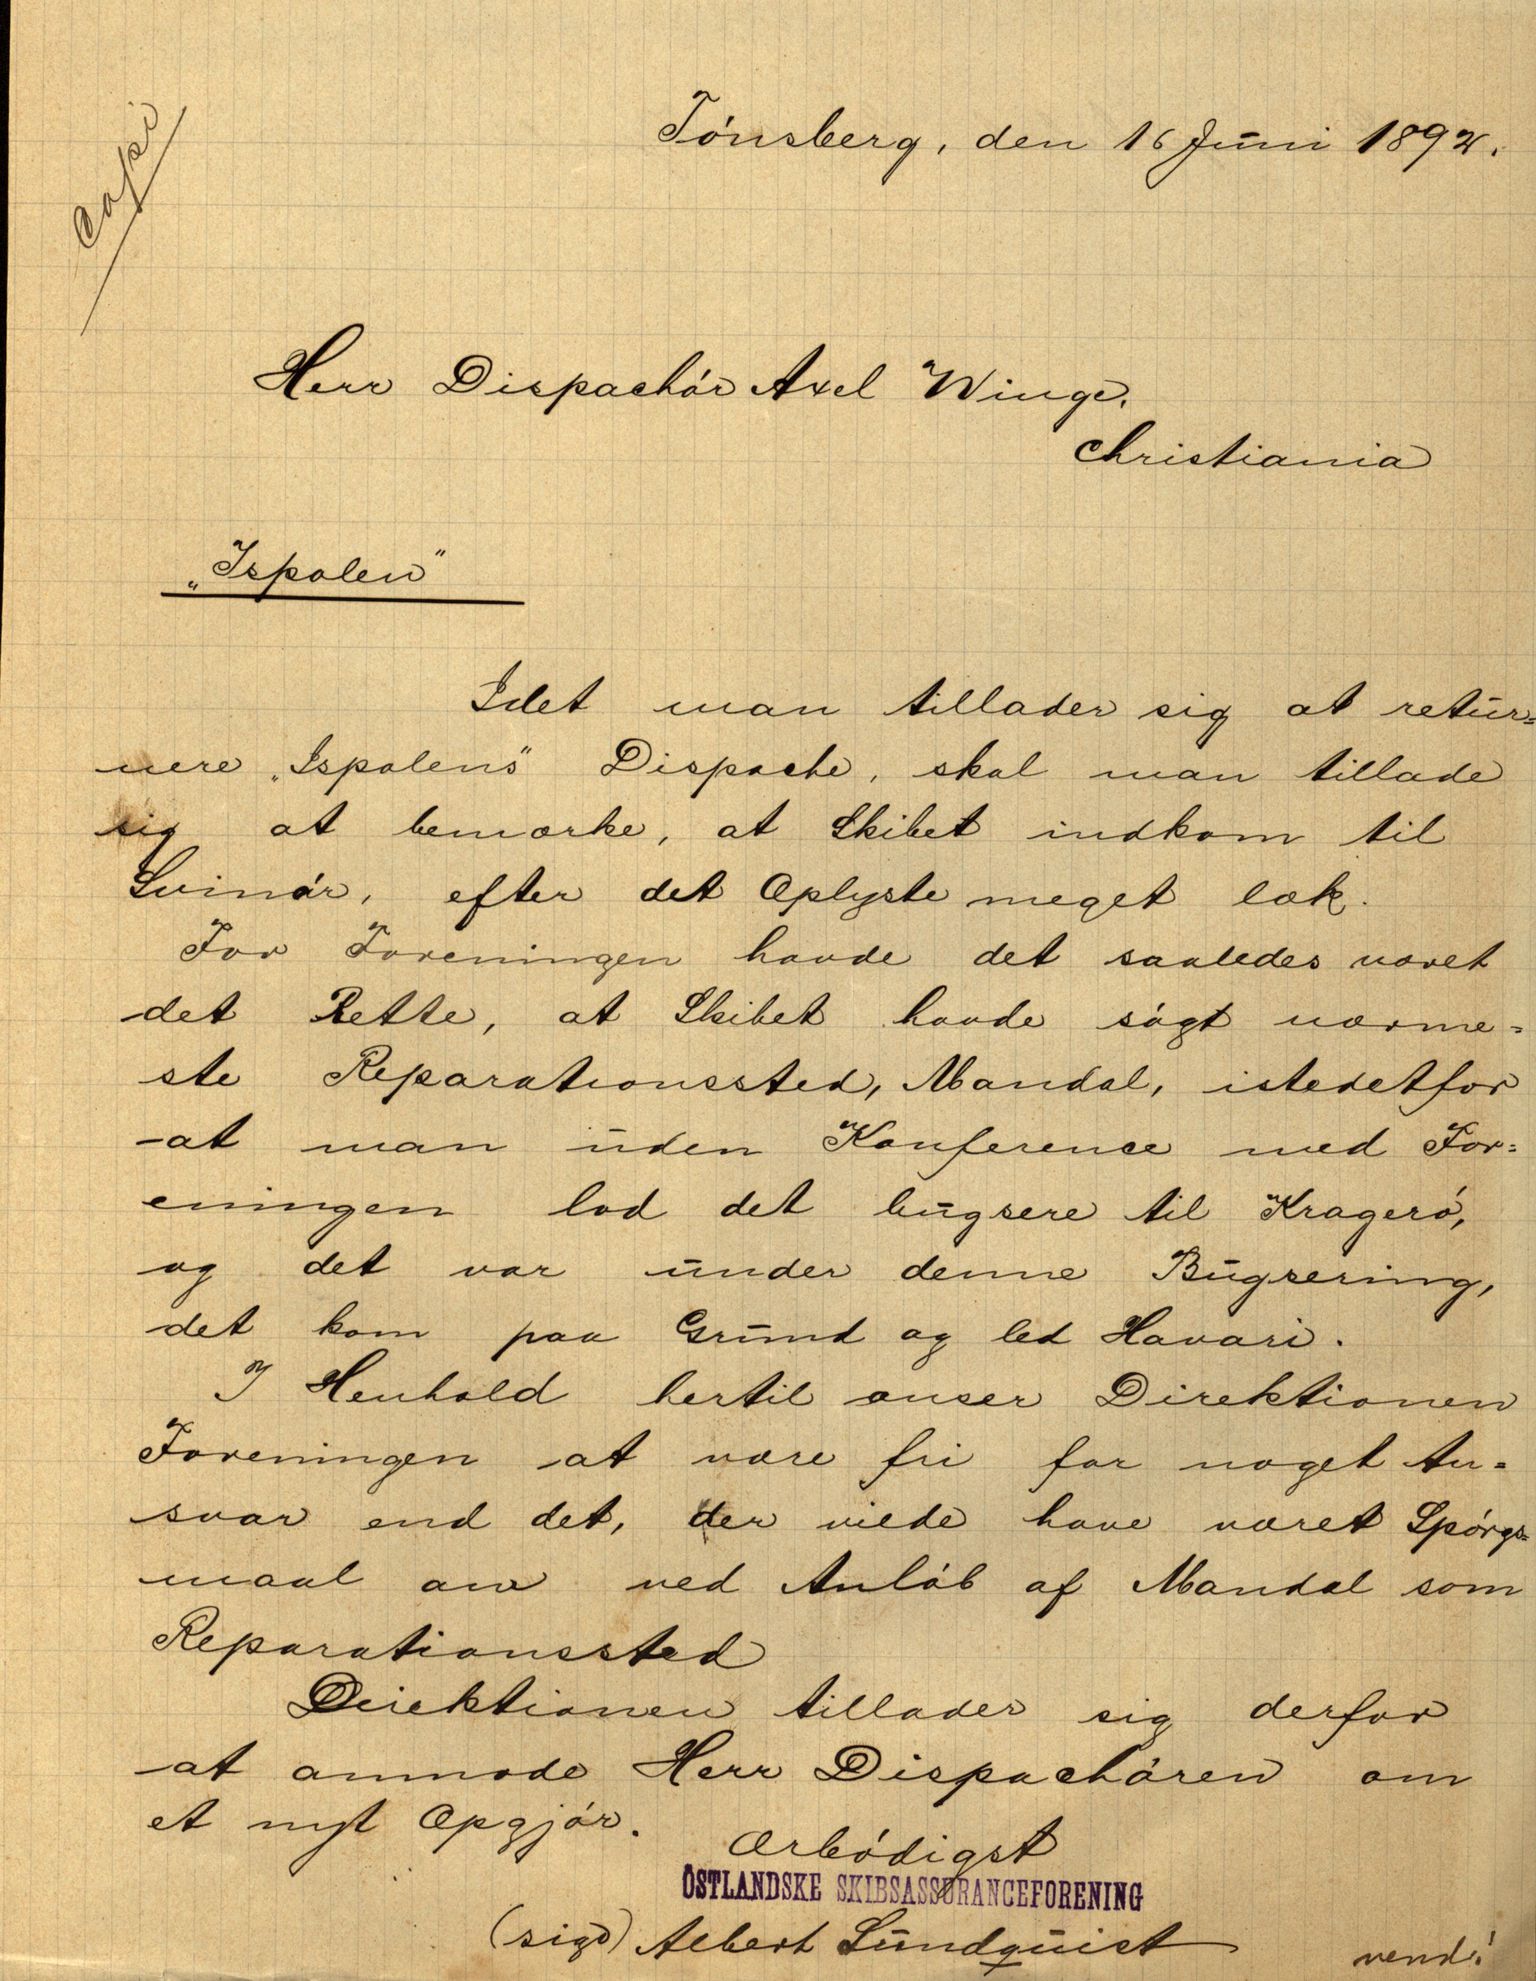 Copi
Tónsberg, den 16 Juni 1892.
Herr Dispachór Axel Winge.
Christiania
„Ispolen“
Idet man tillader sig at retur=
nere „Ispolens“ Dispache, skal man tillade
sig at bemærke, at Skibet indkom til
Svinór, efter det Oplyste meget læk.
For Foreningen havde det saaledes været
det Rette, at Skibet havde sógt nærme=
ste Reparationssted, Mandal, istedetfor
at man uden Konference med For=
eningen lod det bugsere til Kragerö,
og det var under denne Bugsering,
det kom paa Grund og led Havari.
I Henhold hertil anser Direktionen
Foreningen at være fri for noget An=
svar end det, der vilde have været Spórgs=
maal om ved Anlób af Mandal som
Reparationssted
Direktionen tillader sig derfor
at anmode Herr Dispachóren om
et nyt Opgjór.
Ærbódigst
ÖSTLANDSKE SKIBSASSURANCEFORENING
(sigd) Albert Lundquist
vend!